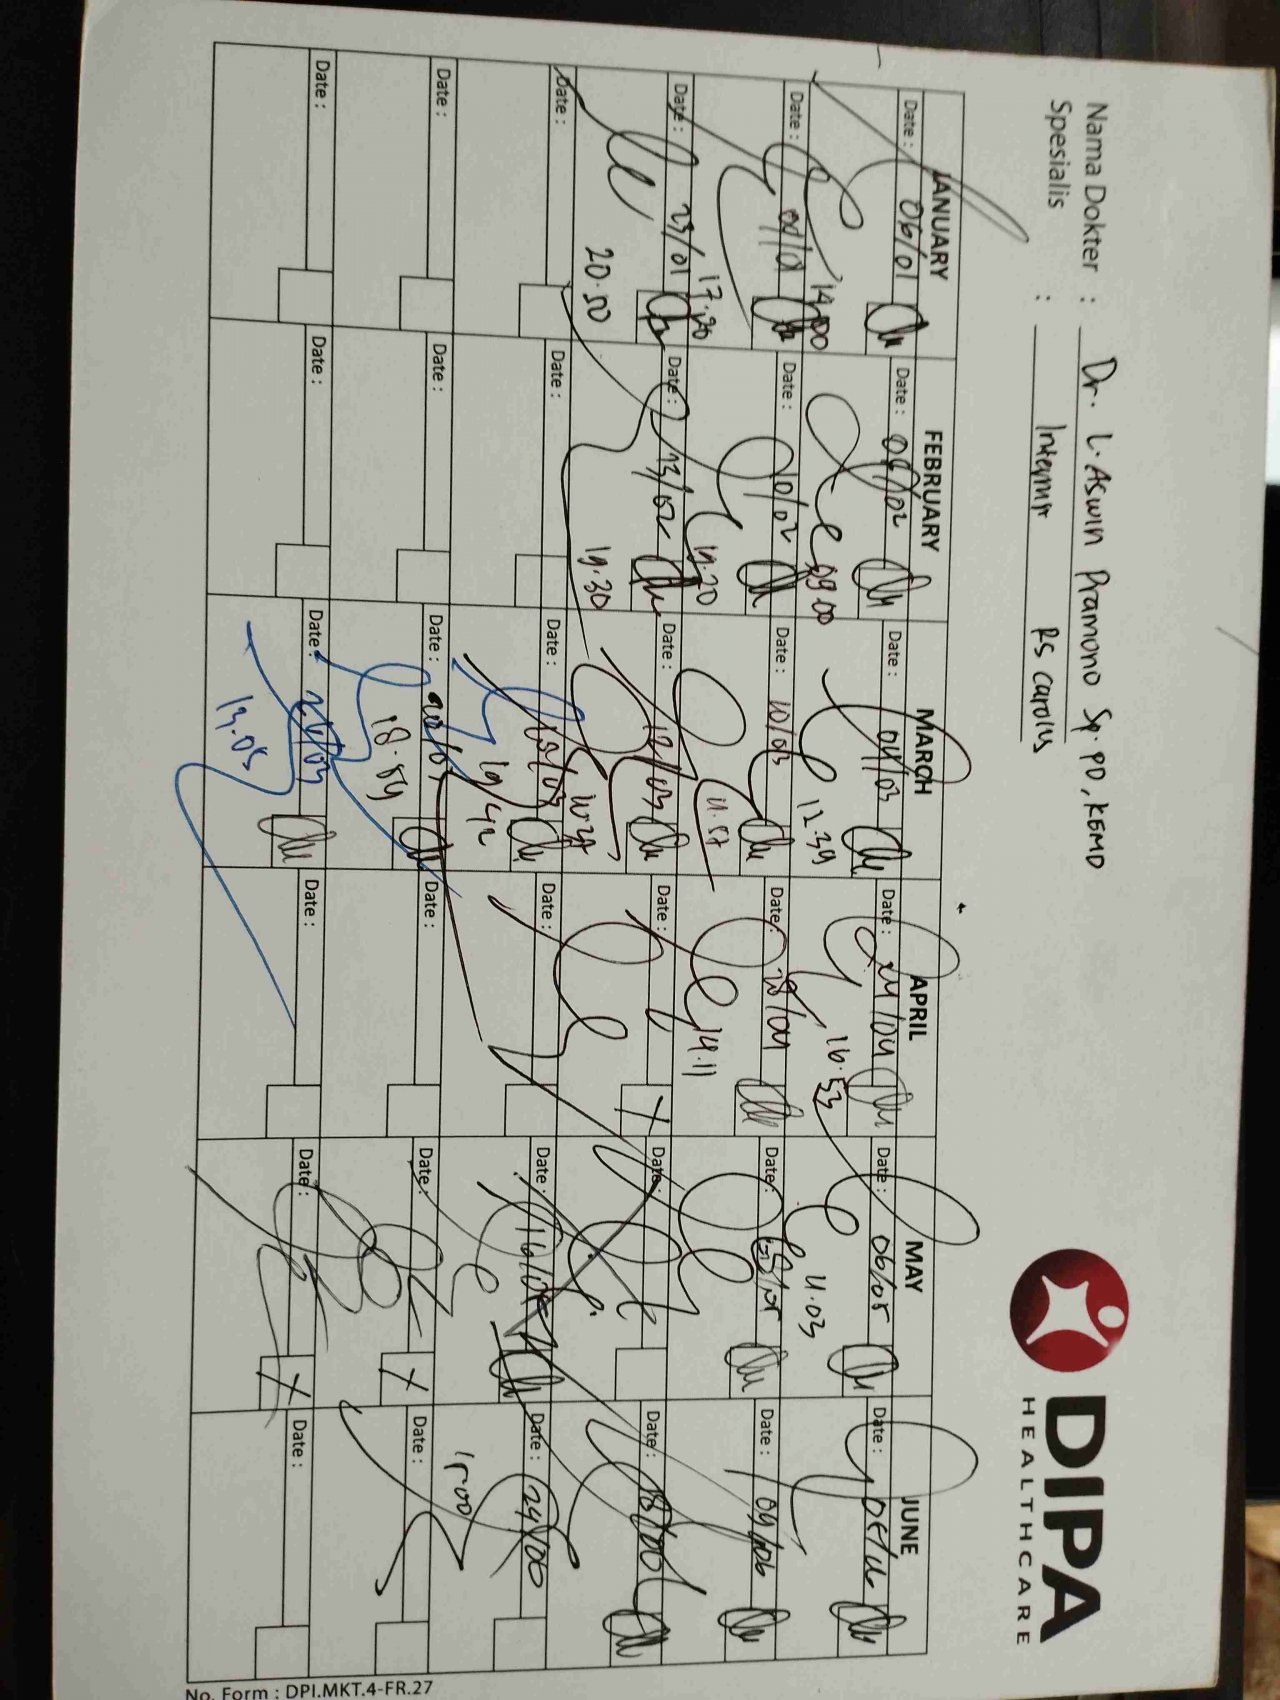 DIPA
HEALTHCARE
Nama Dokter : Dr. L. Aswin Pramono Sp. PD, KEMD
Spesialis : RS Carolus
JANUARY FEBRUARY MARCH APRIL MAY JUNE
Date : 06/01 Date : 06/02 Date : 04/03 Date : 24/04 Date : 06/05 Date :
14.00 09.00 12.39 16.53 11.03
Date : 09/01 Date : 10/02 Date : 10/03 Date : 28/04 Date : Date : 09/06
17.20 19.20 11.57 14.11
Date : 23/01 Date : 13/02 Date : 12/03 Date : Date : Date : 18/06
20.50 19.30
Date : Date : Date : 18/03 Date : Date : 16/05 Date : 24/06
19.42 15.00
Date : Date : Date : 20/03 Date : Date : Date :
18.59
Date : Date : Date : 26/03 Date : Date : Date :
13.05
No. Form : DPI.MKT.4-FR.27